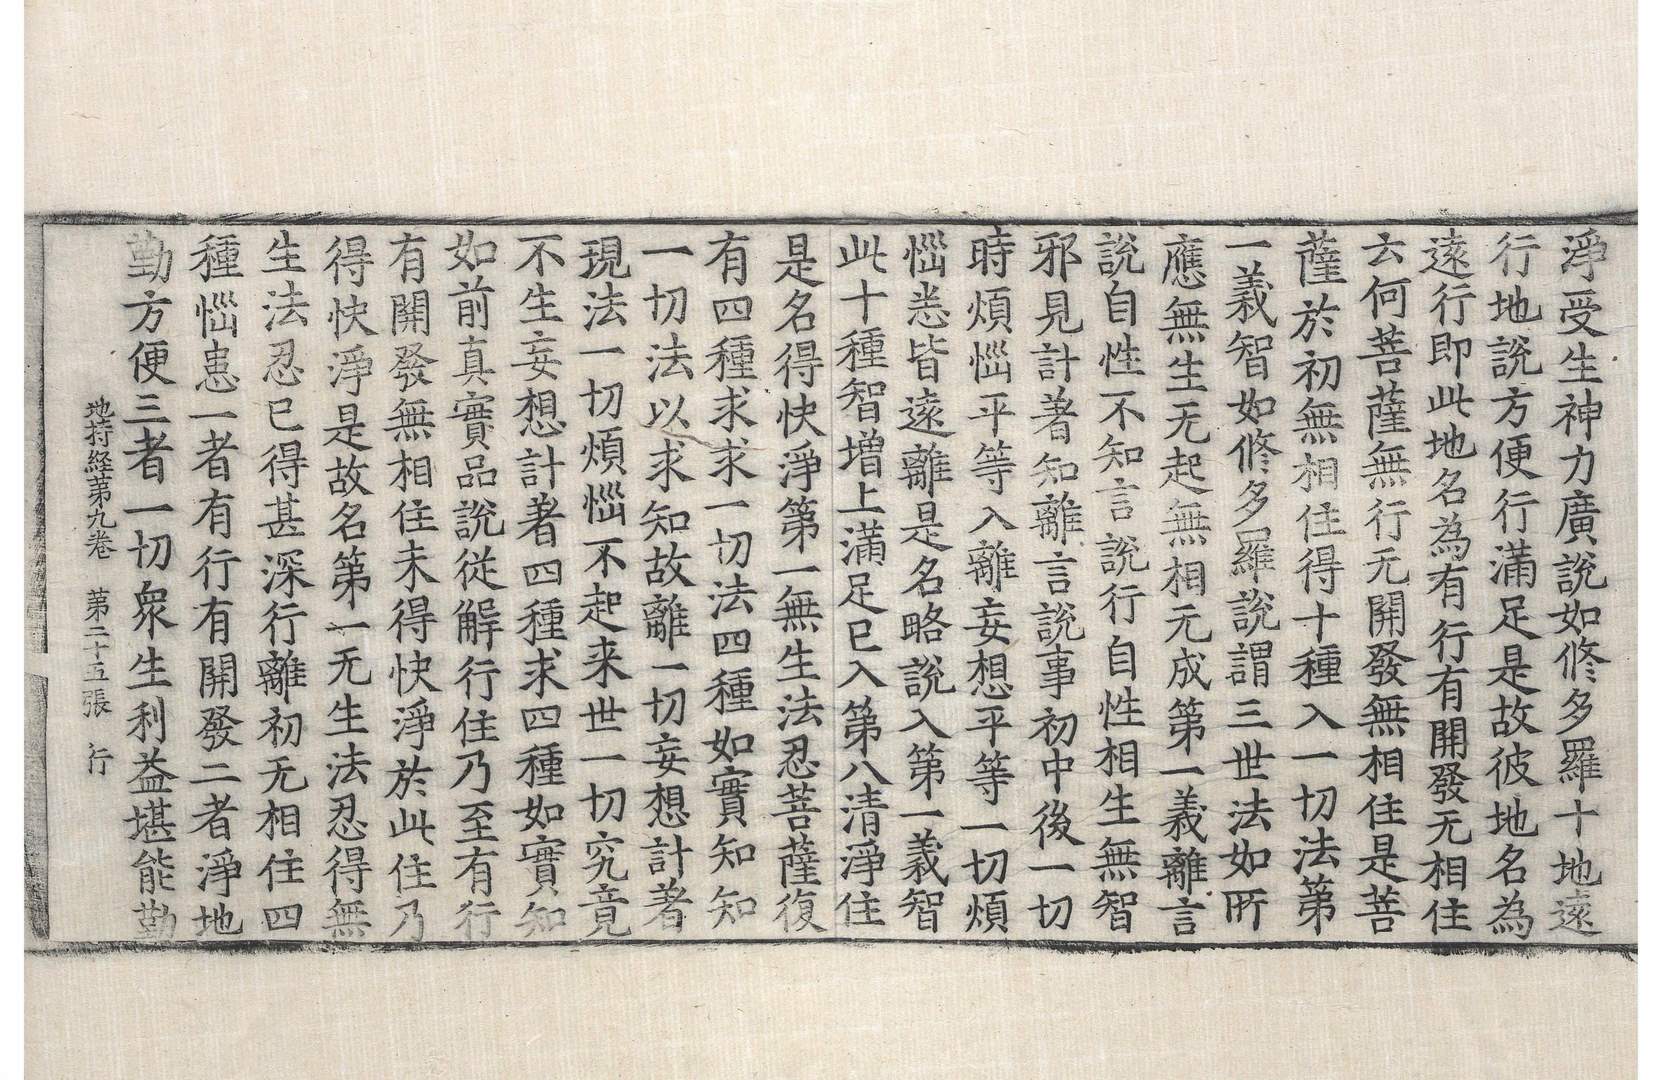 淨受生神力廣說如修多羅十地遠
行地說方便行滿足是故彼地名為
遠行即此地名為有行有開發无相住
云何菩薩無行无開發無相住是菩
薩於初無相住得十種入一切法第
一義智如修多羅說謂三世法如所
應無生无起無相无成第一義離言
說自性不知言說行自性相生無智
邪見計著知離言說事初中後一切
時煩惱平等入離妄想平等一切煩
惱悉皆遠離是名略說入第一義智
此十種智增上滿足已入第八清淨住
是名得快淨第一無生法忍菩薩復
有四種求求一切法四種如實知知
一切法以求求知故離一切妄想計著
現法一切煩惱不起来世一切究竟
不生妄想計著四種求四種如實知
如前真實品說從解行住乃至有行
有開發無相住未得快淨於此住乃
得快淨是故名第一无生法忍得無
生法忍已得甚深行離初无相住四
種惱患一者有行有開發二者淨地
勤方便三者一切眾生利益堪能勤
地持経第九卷 第二十五張 行